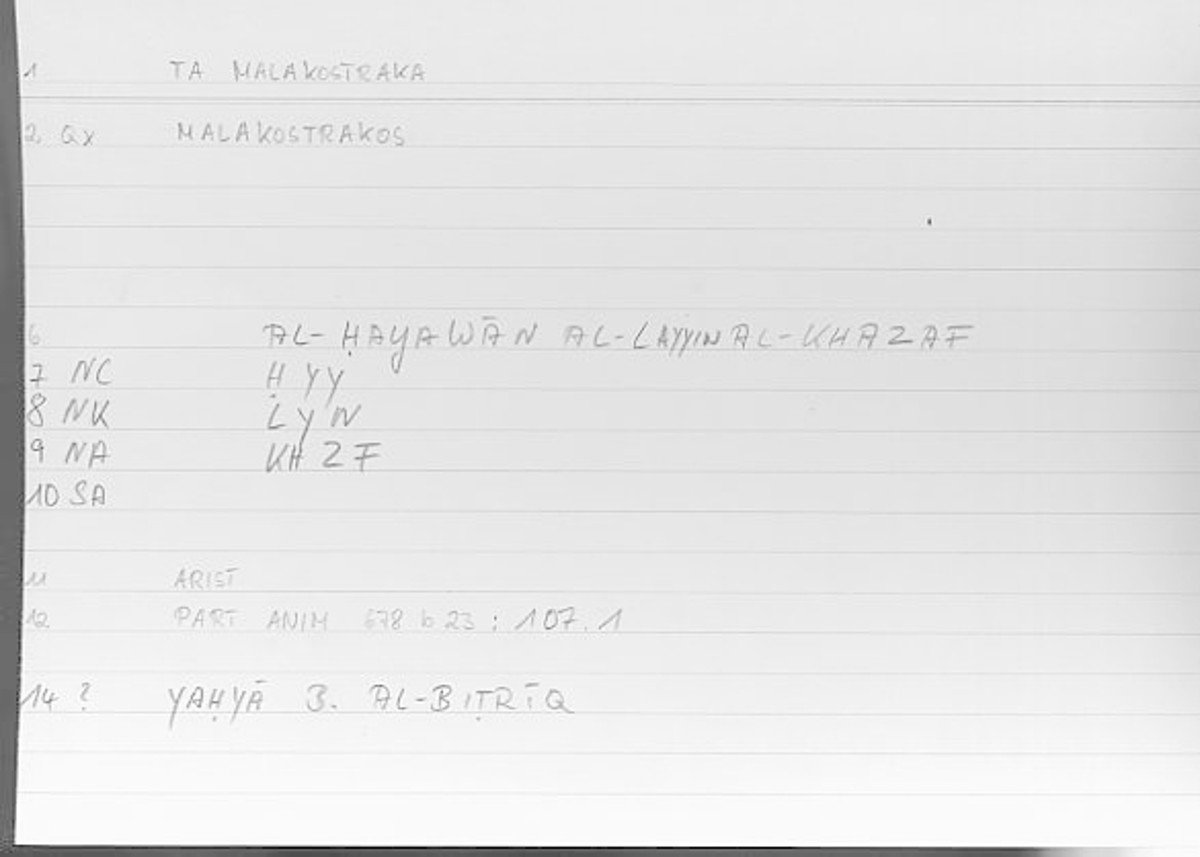 1 TA MALAKOSTRAKA
2 QX MALAKOSTRAKOS
6 AL-ḤAYAWĀN AL-LAYYIN AL-KHAZAF
7 NC ḤYY
8 NK LYN
9 NA KHZF
10 SA
11 ARIST
12 PART ANIM 678 b 23 : 107.1
14 ? YAḤYĀ B. AL-BIṬRĪQ